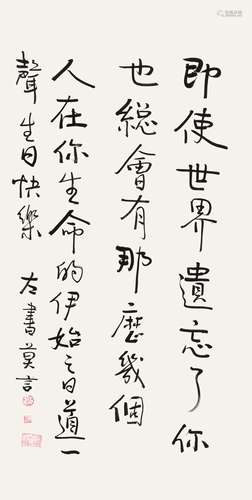 即使世界遺忘了你
也總會有那麽幾個
人在你生命的伊始之日道一
聲生日快樂
左書莫言